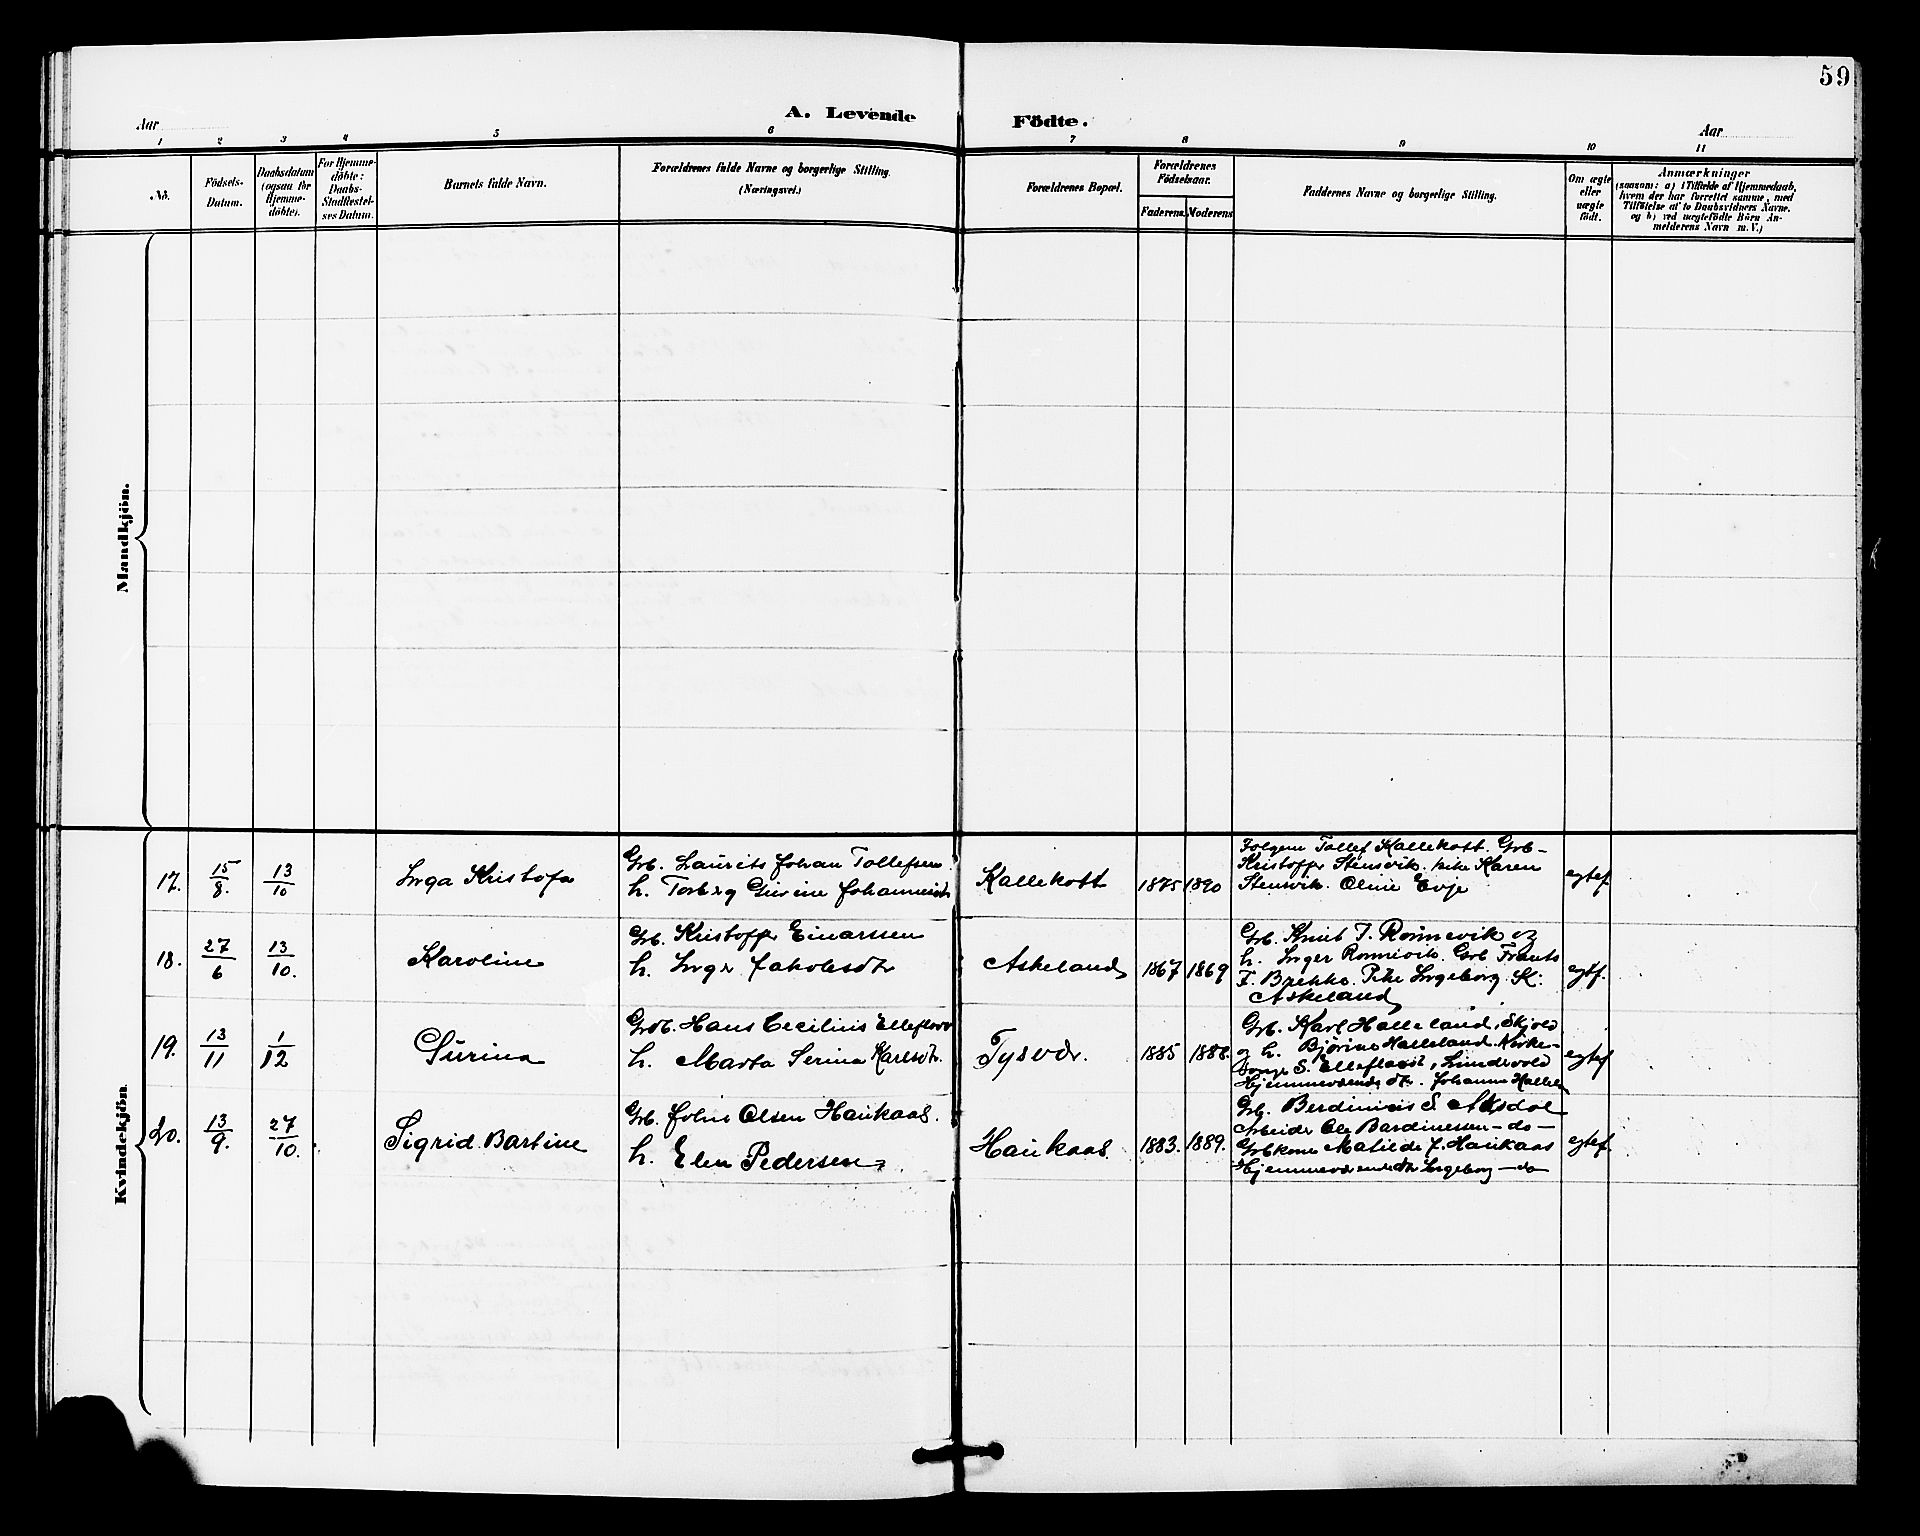 59
A. Levende Födte.
Aar
Aar
1 2 3 4 5 6 7 8 9 10 11
No.
Födsels-
Datum.
Daabsdatum
(ogsaa for
Hjemme-
döbte).
For Hjemme-
döbte:
Daabs-
Stadfæstel-
ses Datum.
Barnets fulde Navn.
Forældrenes fulde Navne og borgerlige Stilling.
(Næringsvei.)
Forældrenes Bopæl.
Forældrenes
Födselsaar.
Faderens. Moderens
Faddernes Navne og borgerlige Stilling.
Om ægte
eller
uægte
födt.
Anmærkninger
(saasom: a) i Tilfælde af Hjemmedaab,
hvem der har forrettet samme, med
Tilföielse af to Daabsvidners Navne.
og b) ved uægtefödte Börn An-
melderens Navn m.V.)
Mandkjön.
Kvindekjön
17.
15/8.
13/10
Inga Kristofa
Grb. Laurits Johan Tollefsen
h. Torborg Gurine Johannesdt
Kallekott
1875 1890
Tollef Kallekott. Grb-
Kristoffer Stensvik. pike Karen
Stensvik. Oline Evje
egtef.
18.
27/6
13/10.
Karoline
Grb. Kristoffer Einarssen
h. Inger Jakobsdtr
Askeland
1867 1869
Grb. Knut T. Rönnevik og
h. Inger Ronnevik. Grb Frants
F. Brekke. Pike Ingeborg K.
Askeland
egtf.
19.
13/11
1/12
Surina
Grdb. Hans Cecilius
h. Marta Serina Karlsdtr.
Tysvær.
1885 1888.
Grb. Karl Halleland, Skjold
og h. Bjørine Halleland. Kirke-
S. Elleflaat,
Hjemmeværende dtr. Johanne
egtef
20.
13/9.
27/10.
Sigrid Bartine
Grb. Johs Olsen Haukaas.
h. Elen Pedersen
Haukaas
1883. 1889.
Grb. Berdinius S. Aksdal
Arbeider Ole Bardinessen - do -
Grbkone Matilde J. Haukaas
Hjemmeværende dtr Ingeborg - do
egtef.